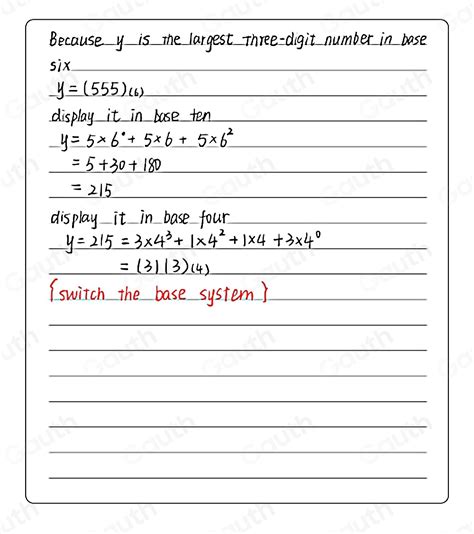 Because y is the largest three-digit number in base
six
y = (555)₍₆₎
display it in base ten
y = 5×6⁰ + 5×6 + 5×6²
= 5+30+180
= 215
display it in base four
y = 215 = 3×4³ + 1×4² + 1×4 + 3×4⁰
= (3113)₍₄₎
{switch the base system}
Gauth